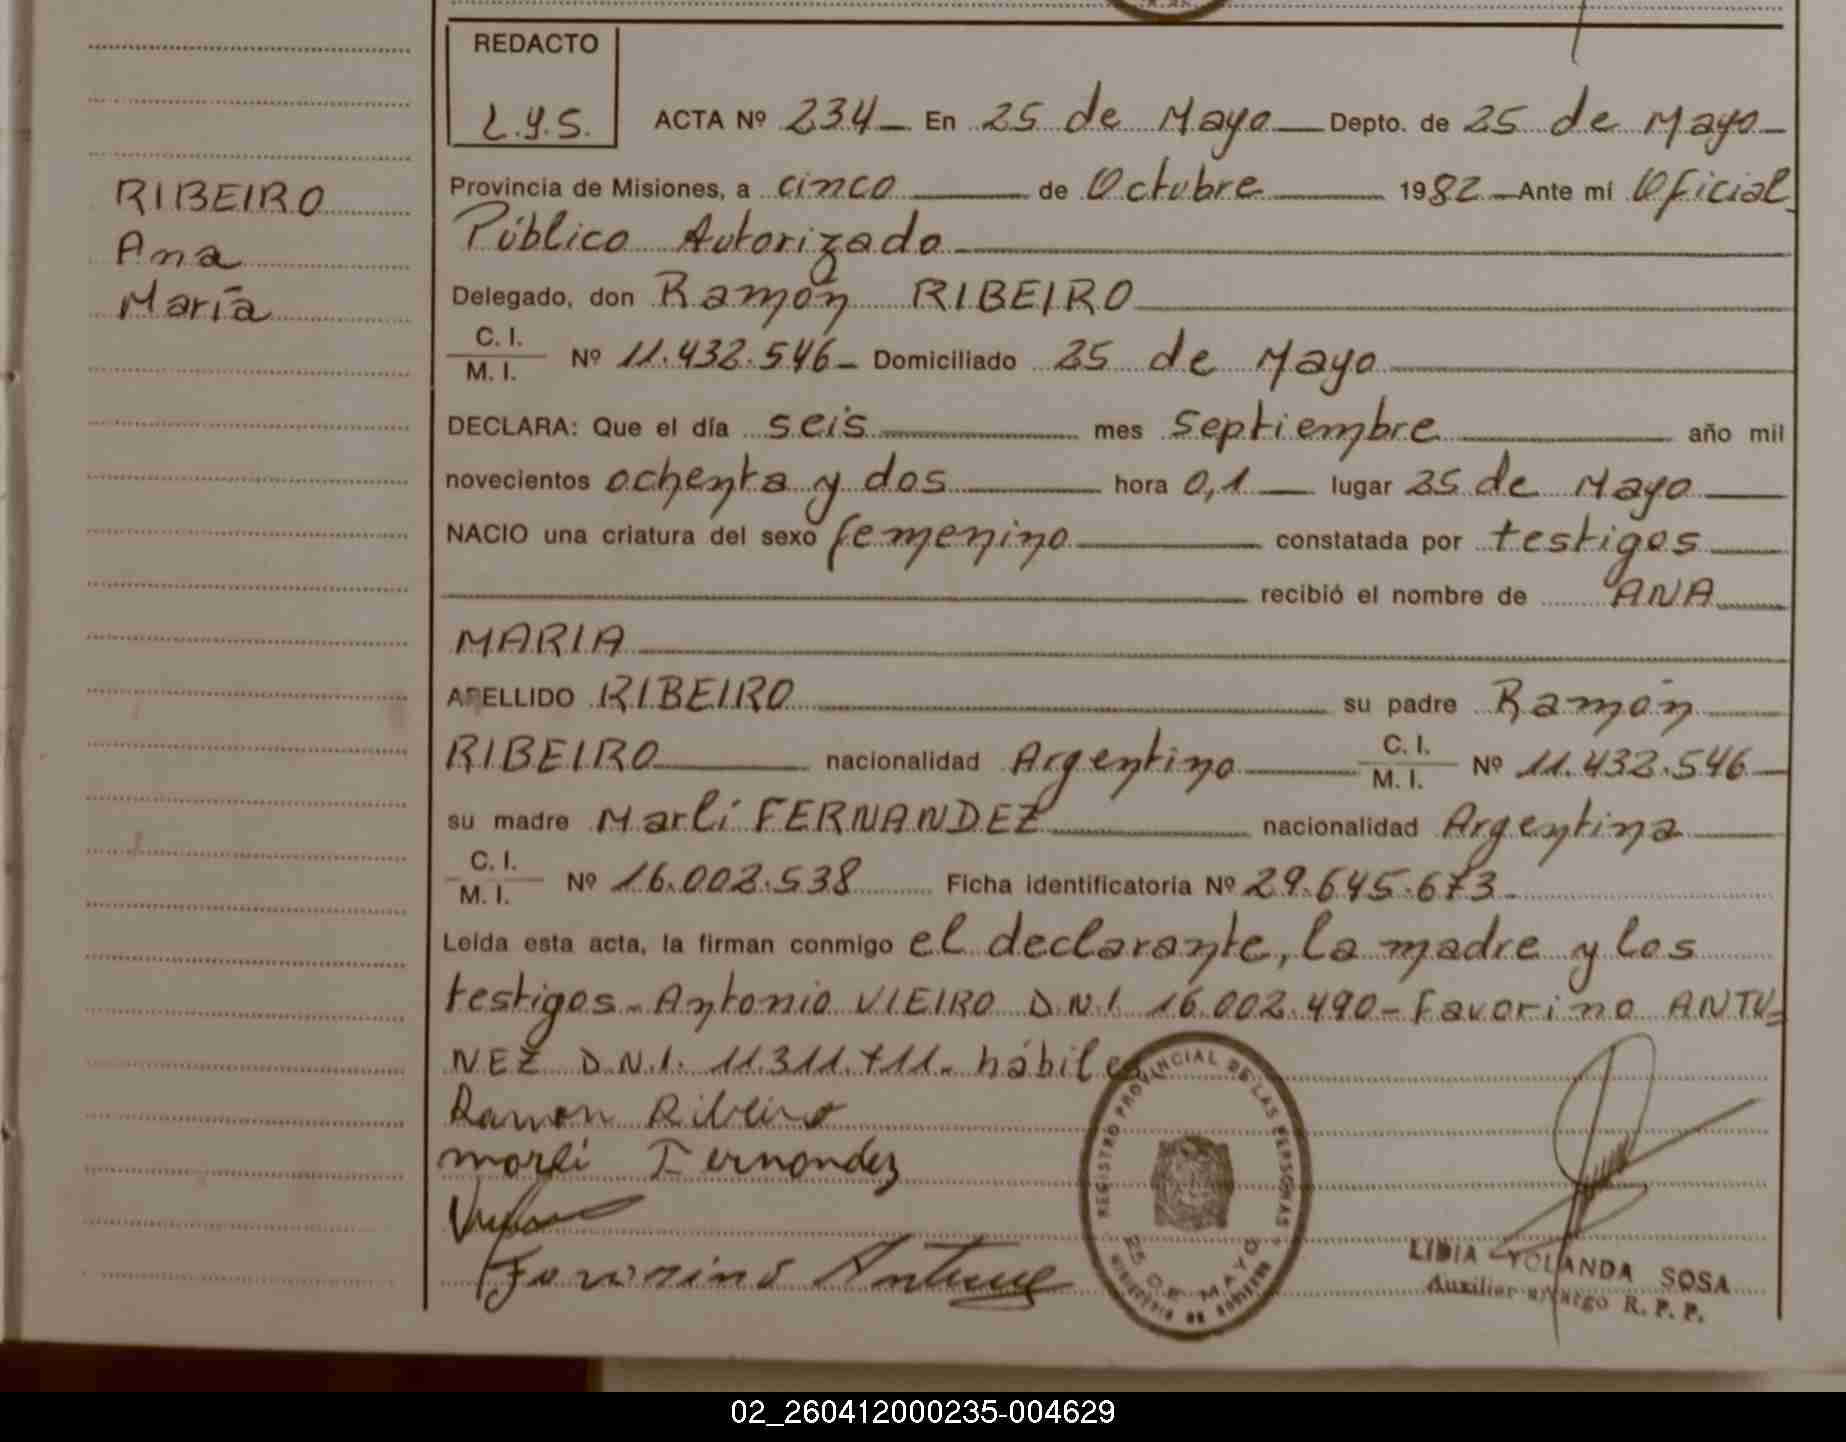 REDACTO
L.Y.S.
ACTA Nº 234 En 25 de Mayo Depto. de 25 de Mayo
RIBEIRO
Ana
María
Provincia de Misiones, a cinco de Octubre 1982 Ante mí Oficial
Público Autorizado
Delegado, don Ramón RIBEIRO
C. I.
M. I. Nº 11.432.546 Domiciliado 25 de Mayo
DECLARA: Que el día seis mes septiembre año mil
novecientos ochenta y dos hora 0,1 lugar 25 de Mayo
NACIO una criatura del sexo femenino constatada por testigos
recibió el nombre de ANA
MARIA
APELLIDO RIBEIRO su padre Ramón
RIBEIRO nacionalidad Argentino C. I. M. I. Nº 11.432.546
su madre Marlí FERNANDEZ nacionalidad Argentina
C. I.
M. I. Nº 16.002.538 Ficha identificatoria Nº 29.645.673
Leída esta acta, la firman conmigo el declarante, la madre y los
testigos - Antonio VIEIRO D.N.I. 16.002.490 - Favorino ANTU=
NEZ D.N.I. 11.311.711 - hábiles
Ramon Ribeiro
marli Fernandez
Favorino Antune
REGISTRO PROVINCIAL DE LAS PERSONAS
25 DE MAYO
MINISTERIO DE GOBIERNO
LIDIA YOLANDA SOSA
Auxiliar a/cargo R. P. P.
02_260412000235-004629